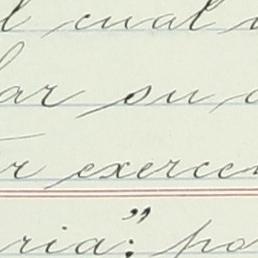 l cual
ar su
r exercen
ria"; po